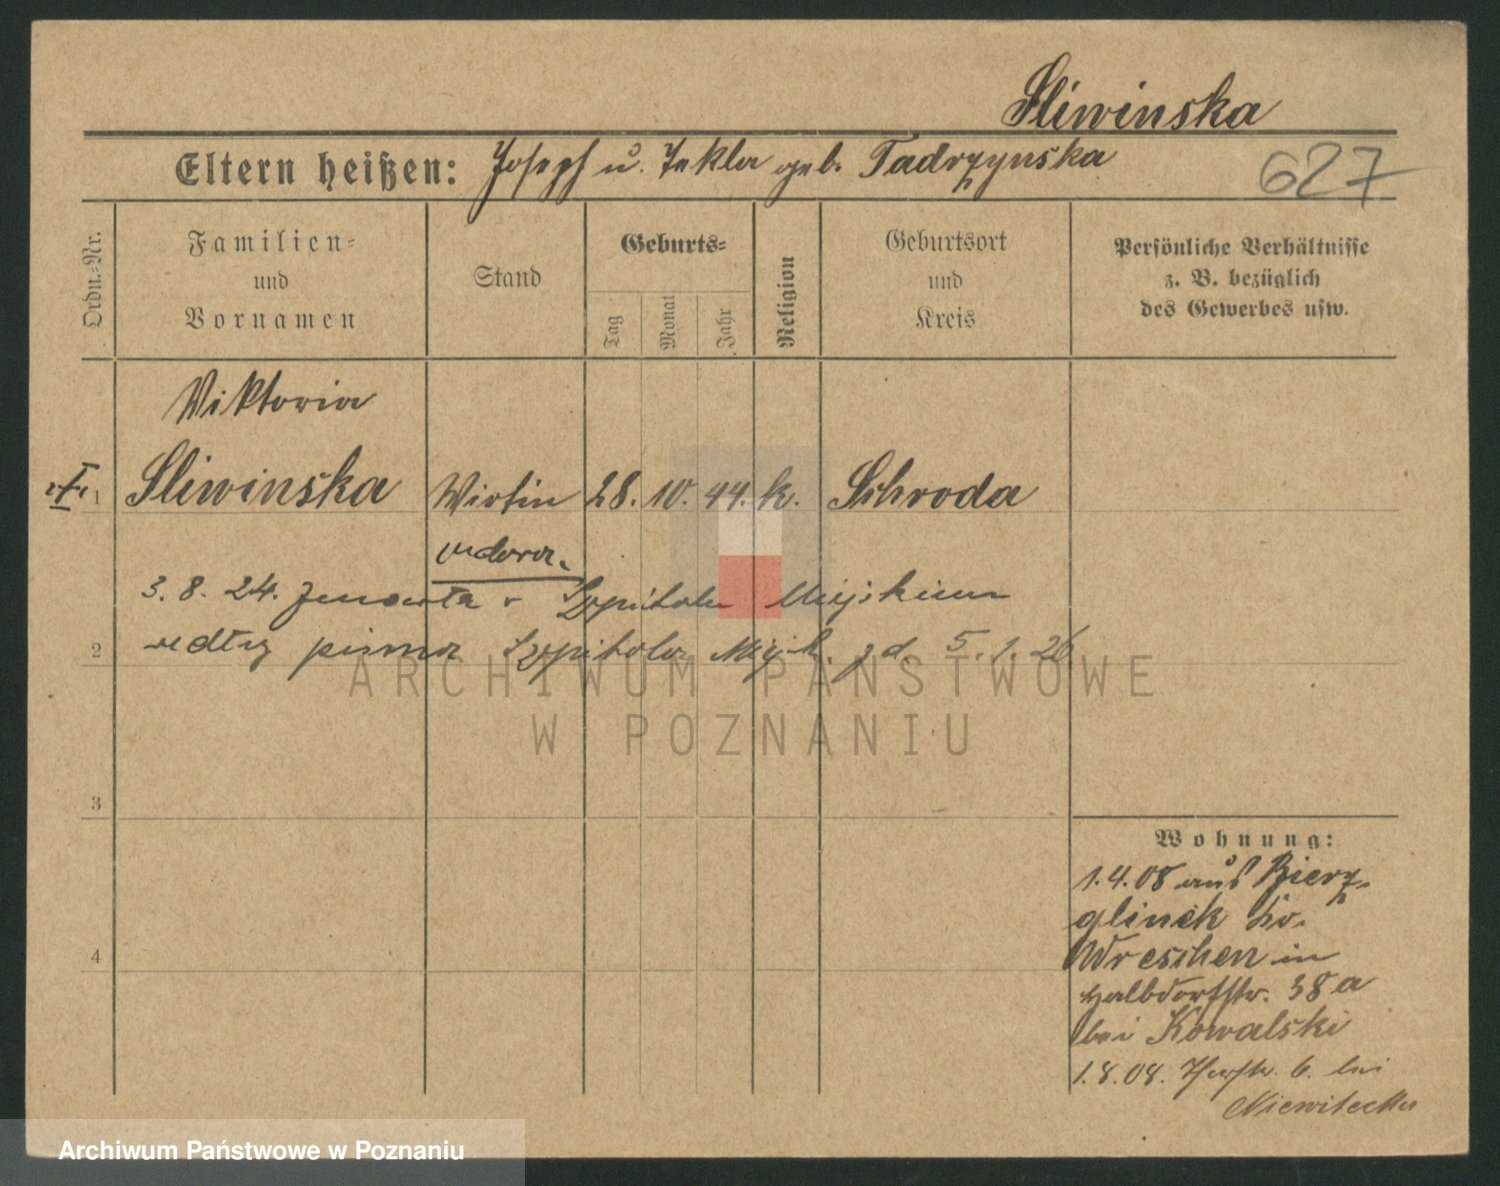 Sliwinska
Eltern heißen: Joseph u. Tekla geb. Tadrzynska
627
Ordn.-Nr.
Familien-
und
Vornamen
Stand
Geburts-
Tag
Monat
Jahr
Religion
Geburtsort
und
Kreis
Persönliche Verhältnisse
z. B. bezüglich
des Gewerbes usw.
Viktoria
1 Sliwinska Wirtin 28. 10. 44. k. Schroda
wdowa.
3. 8. 24. zmarła w Szpitalu Miejskim
2 według pisma Szpitala Miejsk. z d. 5. 1. 26
3
4
Wohnung:
1.4.08 aus Bierz-
glinek Kr.
Wreschen in
Halbdorfstr. 38a
bei Kowalski
1.8.08. 6. bei
ARCHIWUM PAŃSTWOWE
W POZNANIU
Archiwum Państwowe w Poznaniu